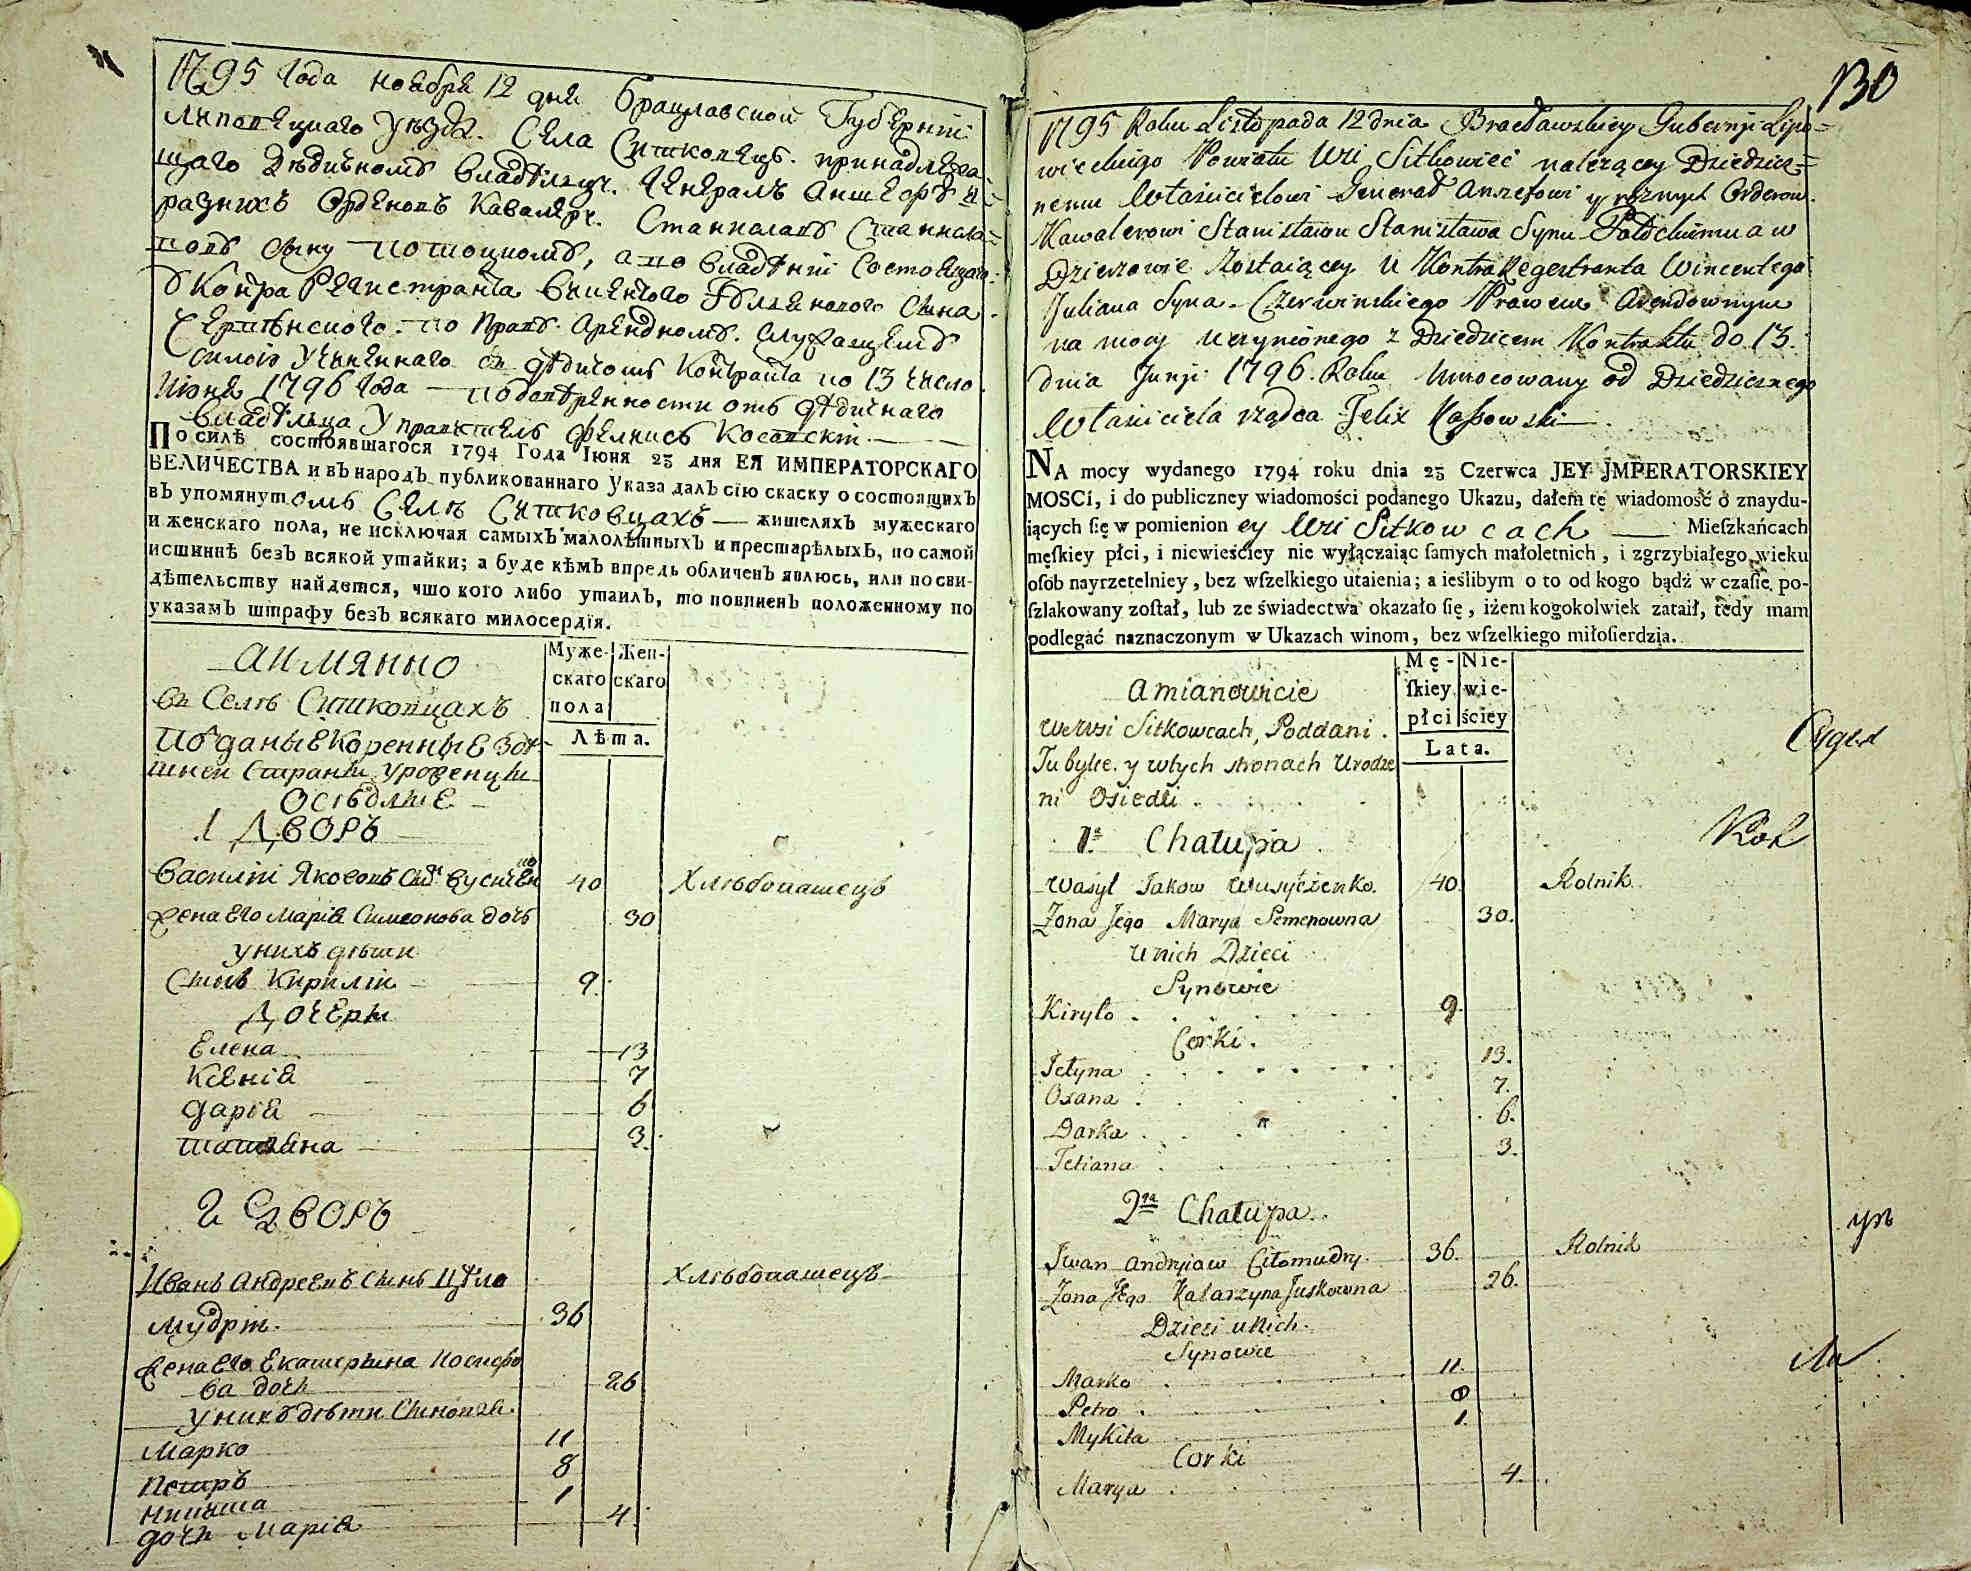 1795 Года ноября 12 дня Брацлавской Губернїи
Липовецкаго уезда. Села Ситковецъ. принадлежа-
щаго дедичномъ владелцу. Генералъ аншефъ и
разнихъ Орденовъ Кавалеру. Станиславъ Станисла=
вовъ сыну Потоцкомъ, а во владенїи состоящаго
Контра Регистранта Викентого сына
Черпенского. по праве Арендномъ.
силою учиненнаго съ дедичомъ контракта по 13 число
Июня 1796 Года по доверенности отъ дедичнаго
владелца Управитель Феликсъ Косовскїи
По силѣ состоявшагося 1794 Года Іюня 23 дня ЕЯ ИМПЕРАТОРСКАГО
ВЕЛИЧЕСТВА и въ народъ публикованнаго Указа далъ сїю скаску о состоящихъ
въ упомянутомъ Селѣ Ситковцахъ — жителяхъ мужескаго
и женскаго пола, не исключая самыхъ малолѣтныхъ и престарѣлыхъ, по самой
истиннѣ безъ всякой утайки; а буде кѣмъ впредь обличенъ явлюсь, или по сви-
дѣтельству найдется, что кого либо утаилъ, то повиненъ положенному по
указамъ штрафу безъ всякаго милосердїя.
Муже- Жен-
скаго скаго
пола
Лѣта.
а имянно
въ Селѣ Ситковцахъ
Подданые Коренные зде-
шней Стораны уроженцы
Оседлые
1 Дворъ
Василїи Яковъ Сынъ Вусиченко 40 Хлѣбопашецъ
Жена его Марїя Симеонова дочь 30
у нихъ дѣти
Сынъ Кирилїи 9.
Дочеры
Елена 13
Ксенїя 7
Дарїя 6
Татияна 3.
2 Дворъ
Иванъ Андреевъ Сынъ Цѣло Хлѣбопашецъ
мудрїи. 36
Жена Его Екатерина Иосифо
ва дочь 26
у нихъ дѣти Сыновя.
Марко 11
Петръ 8
Никита 1
дочь Марїя 4.
130
1795 Roku Listopada 12 dnia Bracławskiey Gubernji Lipo=
wieckiego Powiatu Wsi Sitkowiec należącey Dziedzicz=
nemu Właścicielowi Generał Anszefowi y roznych Orderow
Kawalerowi Stanisławu Stanisława Synu Potockiemu a w
Dzierzawie Zostaiącey U KontraRegestranta Wincentego
Juliana Syna Czerwinskiego Prawem Arendownym
na mocy uczynionego z Dziedzicem Kontraktu do 13.
dnia Junji 1796. Roku Umocowany od Dziedzicznego
Właściciela rządca Felix Kaßowski
NA mocy wydanego 1794 roku dnia 23 Czerwca JEY JMPERATORSKIEY
MOSCi, i do publiczney wiadomości podanego Ukazu, dałem tę wiadomość o znaydu-
iących ſię w pomienioney Wsi Sitkowcach — Mieſzkańcach
męſkiey płci, i niewieściey nie wyłączaiąc ſamych małoletnich, i zgrzybiałego wieku
oſób nayrzetelniey, bez wſzelkiego utaienia; a ieślibym o to od kogo bądź w czaſie po-
ſzlakowany zoſtał, lub ze świadectwa okazało ſię, iżem kogokolwiek zataił, tedy mam
podlegać naznaczonym w Ukazach winom, bez wſzelkiego miłoſierdzia.
Mę- Nie-
ſkiey wie-
płci ściey
Lata.
Amianowicie
We Wsi Sitkowcach, Poddani.
Tubylce. y w tych stronach Urodze
ni Osiedli
1a Chałupa
Wasyl Jakow Wusyczenko. 40. Rolnik
Żona Jego Marya Semenowna 30.
U nich Dzieci
Synowie
Kiryło 9.
Corki.
Jełyna 13.
Oxana 7.
Darka 6.
Tetiana 3.
2ga Chałupa.
Jwan Andryiaw Ciłomudry. 36. Rolnik
Żona Jego Katarzyna Juskowna 26.
Dzieci u Nich.
Synowie
Marko 11.
Petro 8
Mykita 1.
Corki
Marya 4.